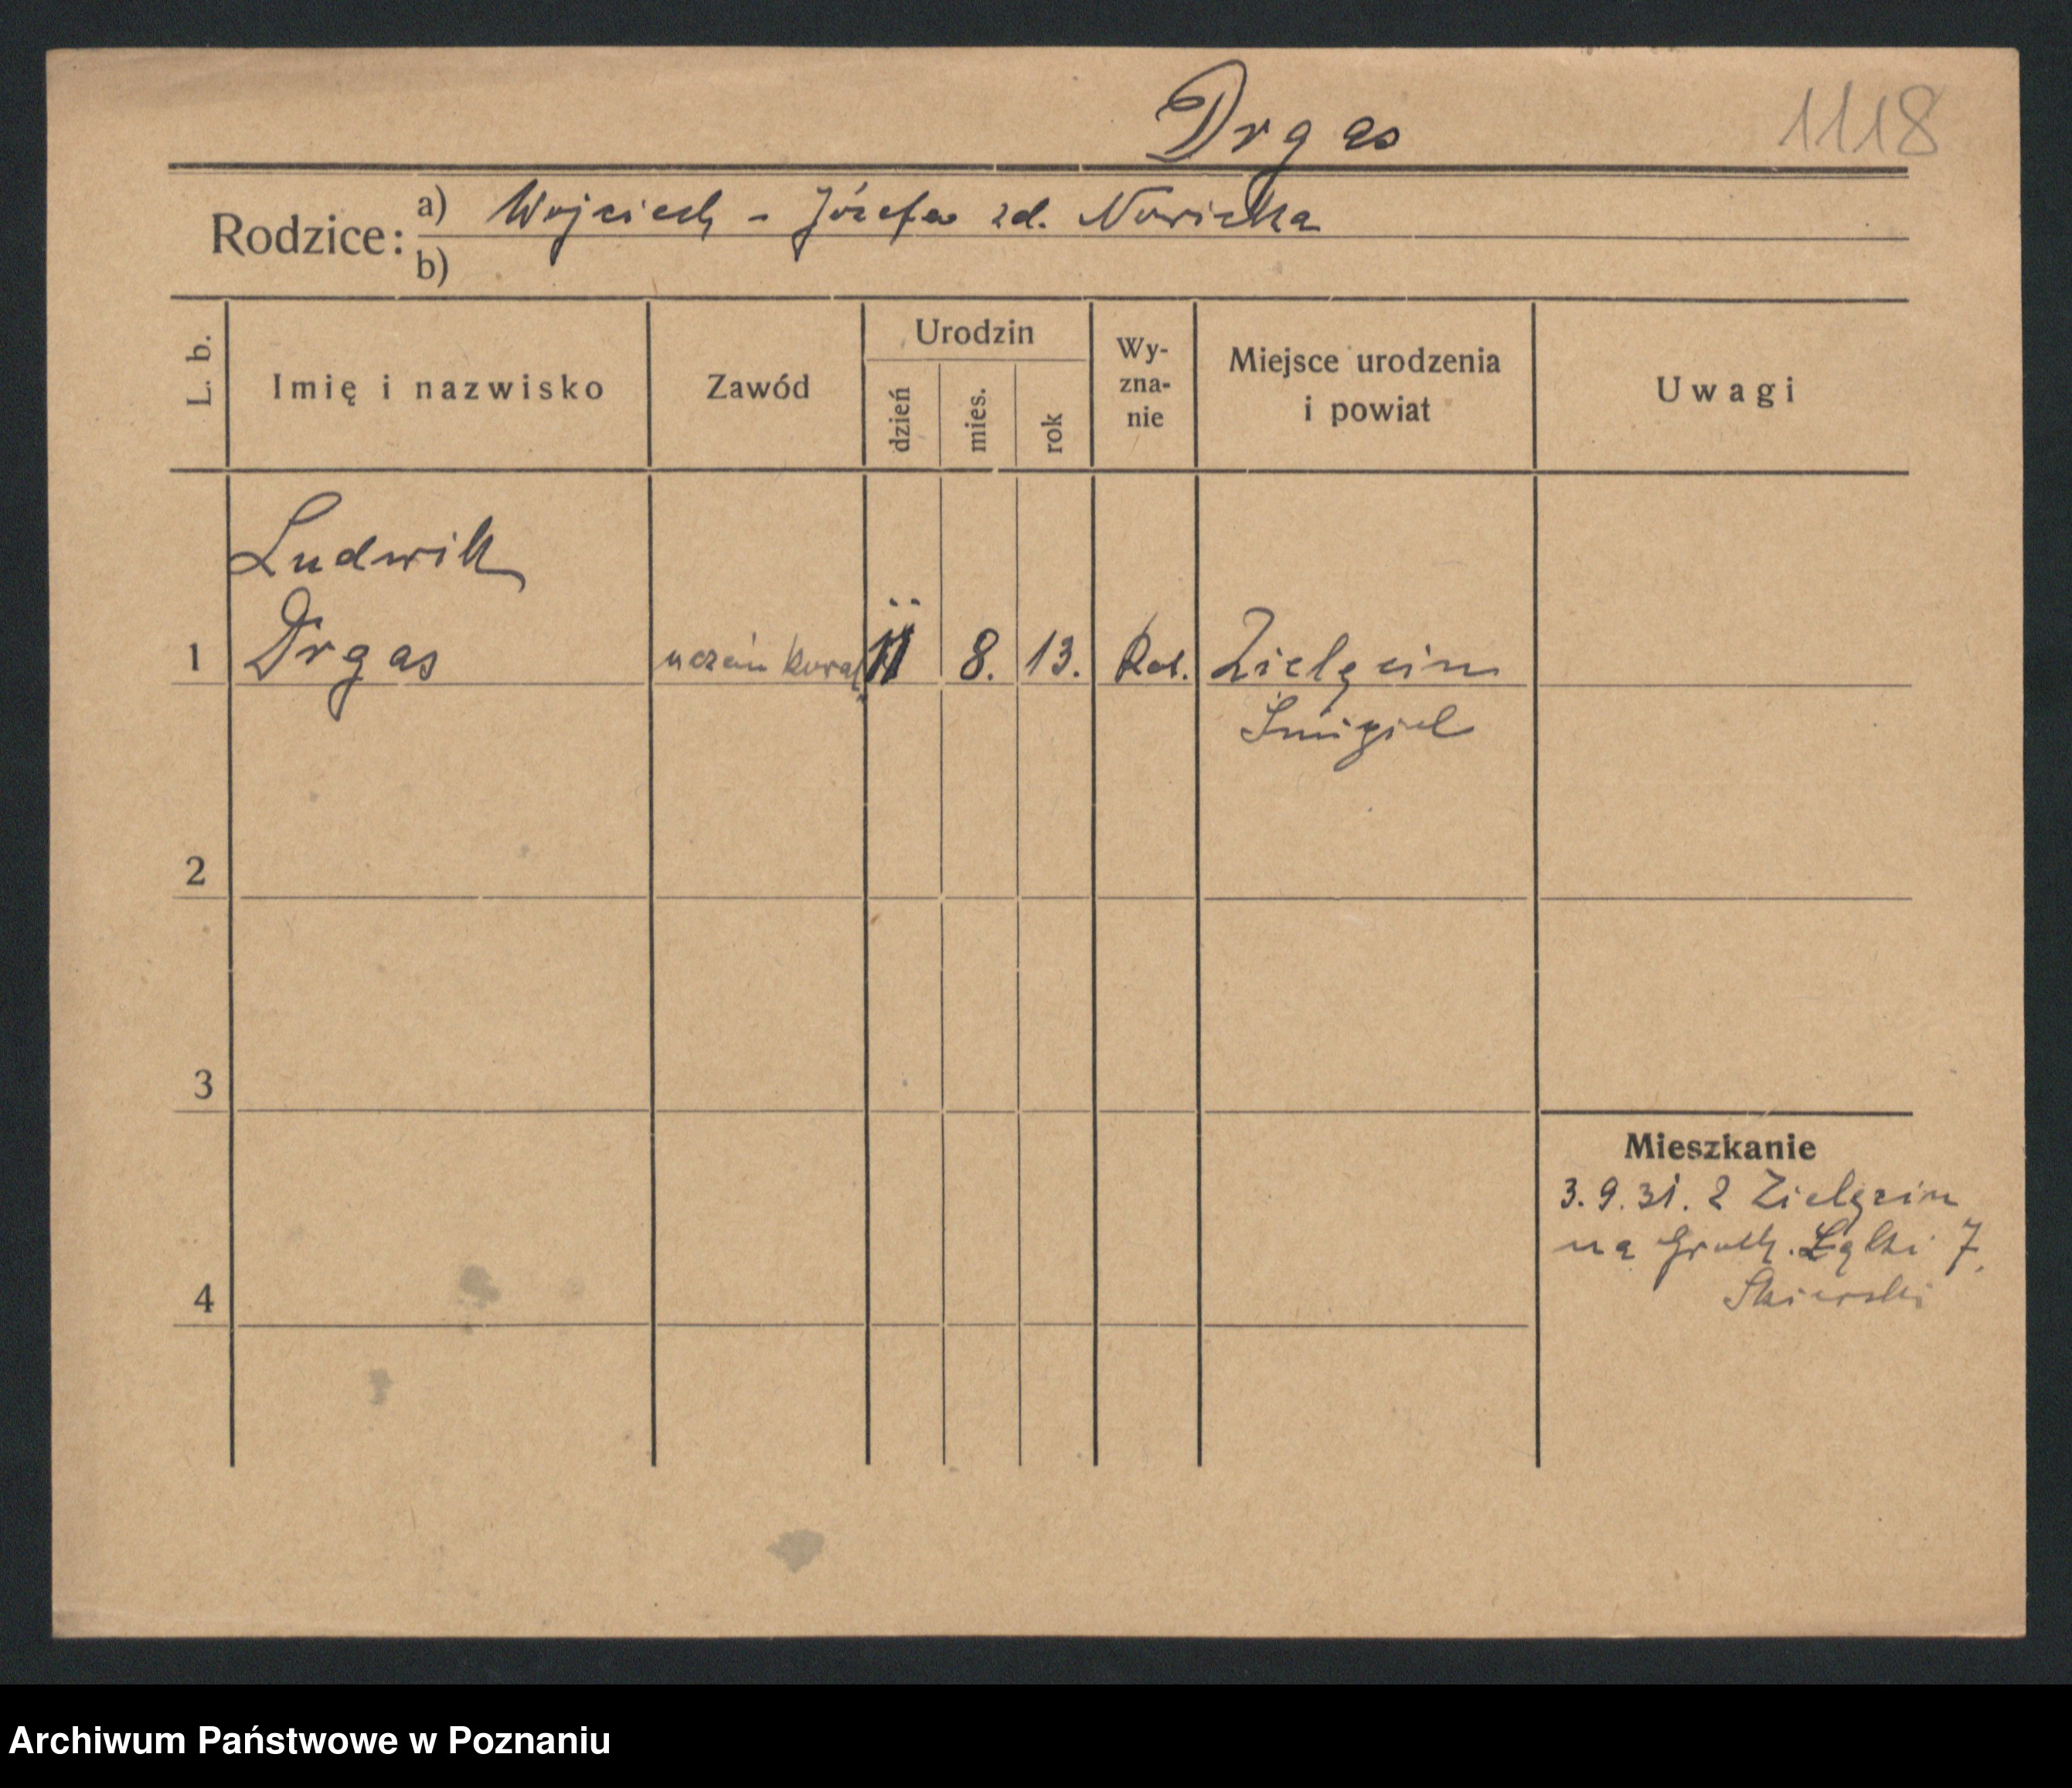 Drgas
1118
Rodzice: a) Wojciech - Józefa zd. Nowicka
b)
L. b.
Imię i nazwisko
Zawód
Urodzin
dzień
mies.
rok
Wy-
zna-
nie
Miejsce urodzenia
i powiat
Uwagi
Ludwik
1 Drgas uczeń kowal. 11 8. 13. Kat. Zielęcin
Śmigiel
2
3
4
Mieszkanie
3. 9. 31. z Zielęcin
na Grodz. Łąki 7.
Skierski
Archiwum Państwowe w Poznaniu